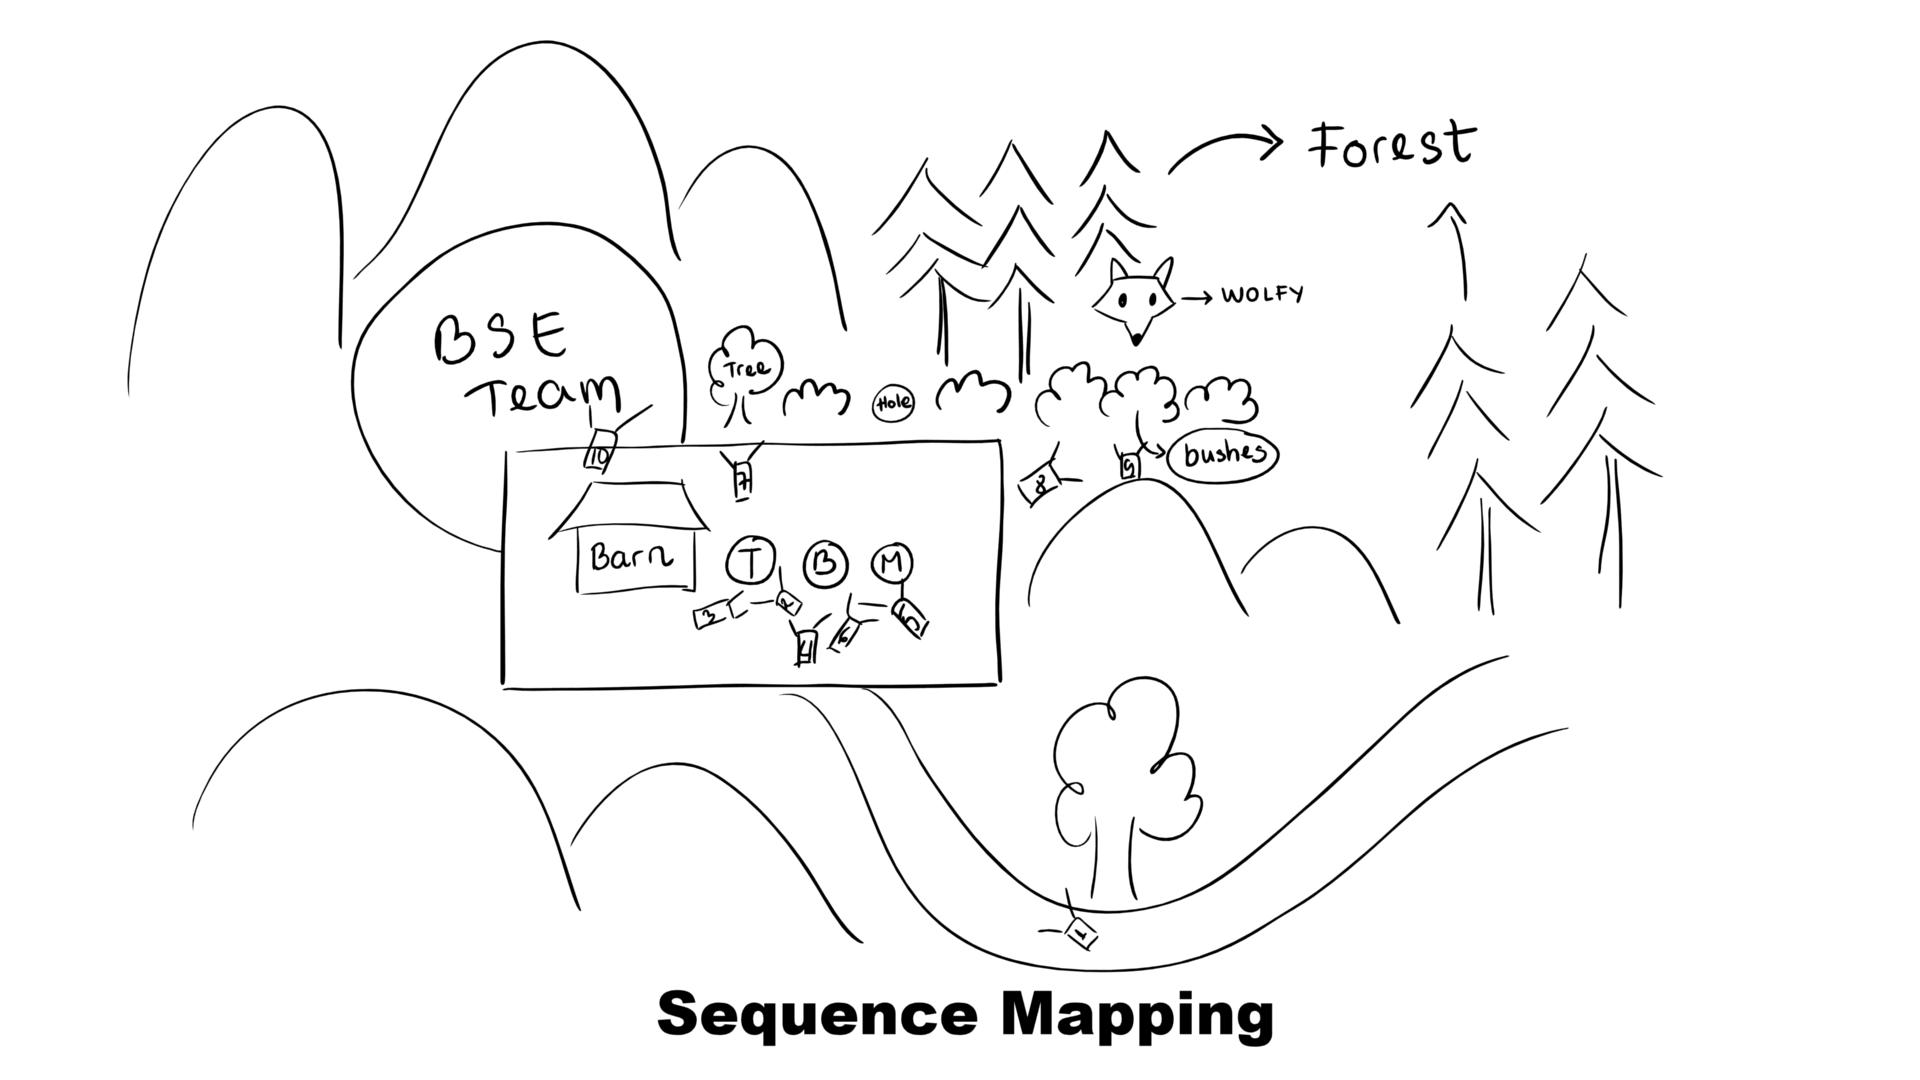 Forest
WOLFY
BSE
Team
Tree
Hole
10
7
8
9
bushes
Barn
T
B
M
3
2
4
6
5
1
Sequence Mapping